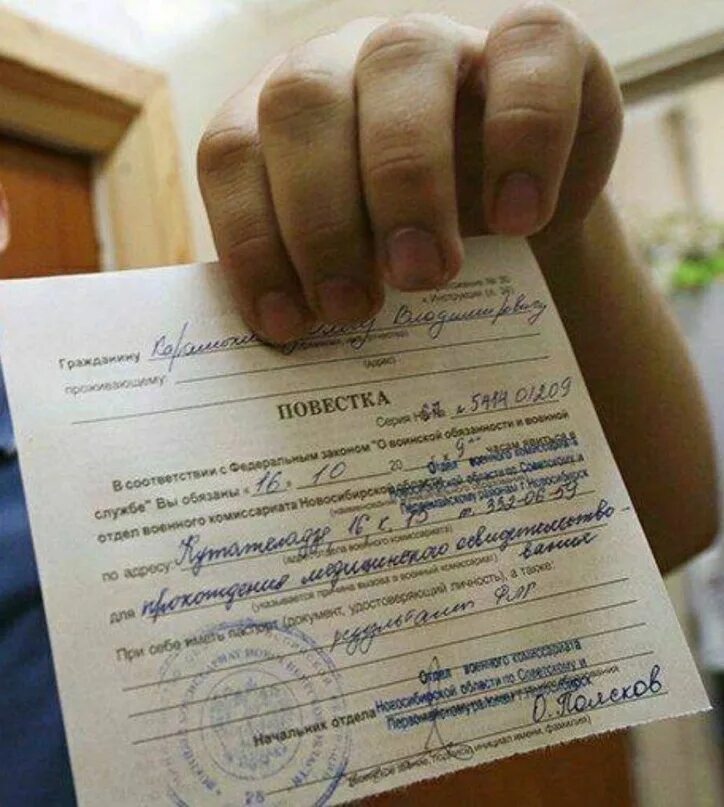 Приложение № 30
к Инструкции (п. 34)
Гражданину Владимировичу
проживающему:
(адрес)
ПОВЕСТКА
Серия НБ № 5414 01209
В соответствии с Федеральным законом "О воинской обязанности и военной
службе" Вы обязаны «16» 10 20 к 9 часам явиться в
отдел военного комиссариата Новосибирской области
Отдел военного комиссариата
Новосибирской области по Советскому и
Первомайскому районам г. Новосибирск
по адресу: Кутателадзе, 16 к. 15 т. 332-06-59
(адрес отдела военного комиссариата)
для прохождения медицинского освидетельствования
(указывается причина вызова в военный комиссариат)
При себе иметь паспорт (документ, удостоверяющий личность), а также:
результат ФЛГ
Отдел военного комиссариата
Новосибирской области по Советскому и
Первомайскому районам г. Новосибирск
Начальник отдела О. Полсков
(воинское звание, подпись, инициал имени, фамилия)
28